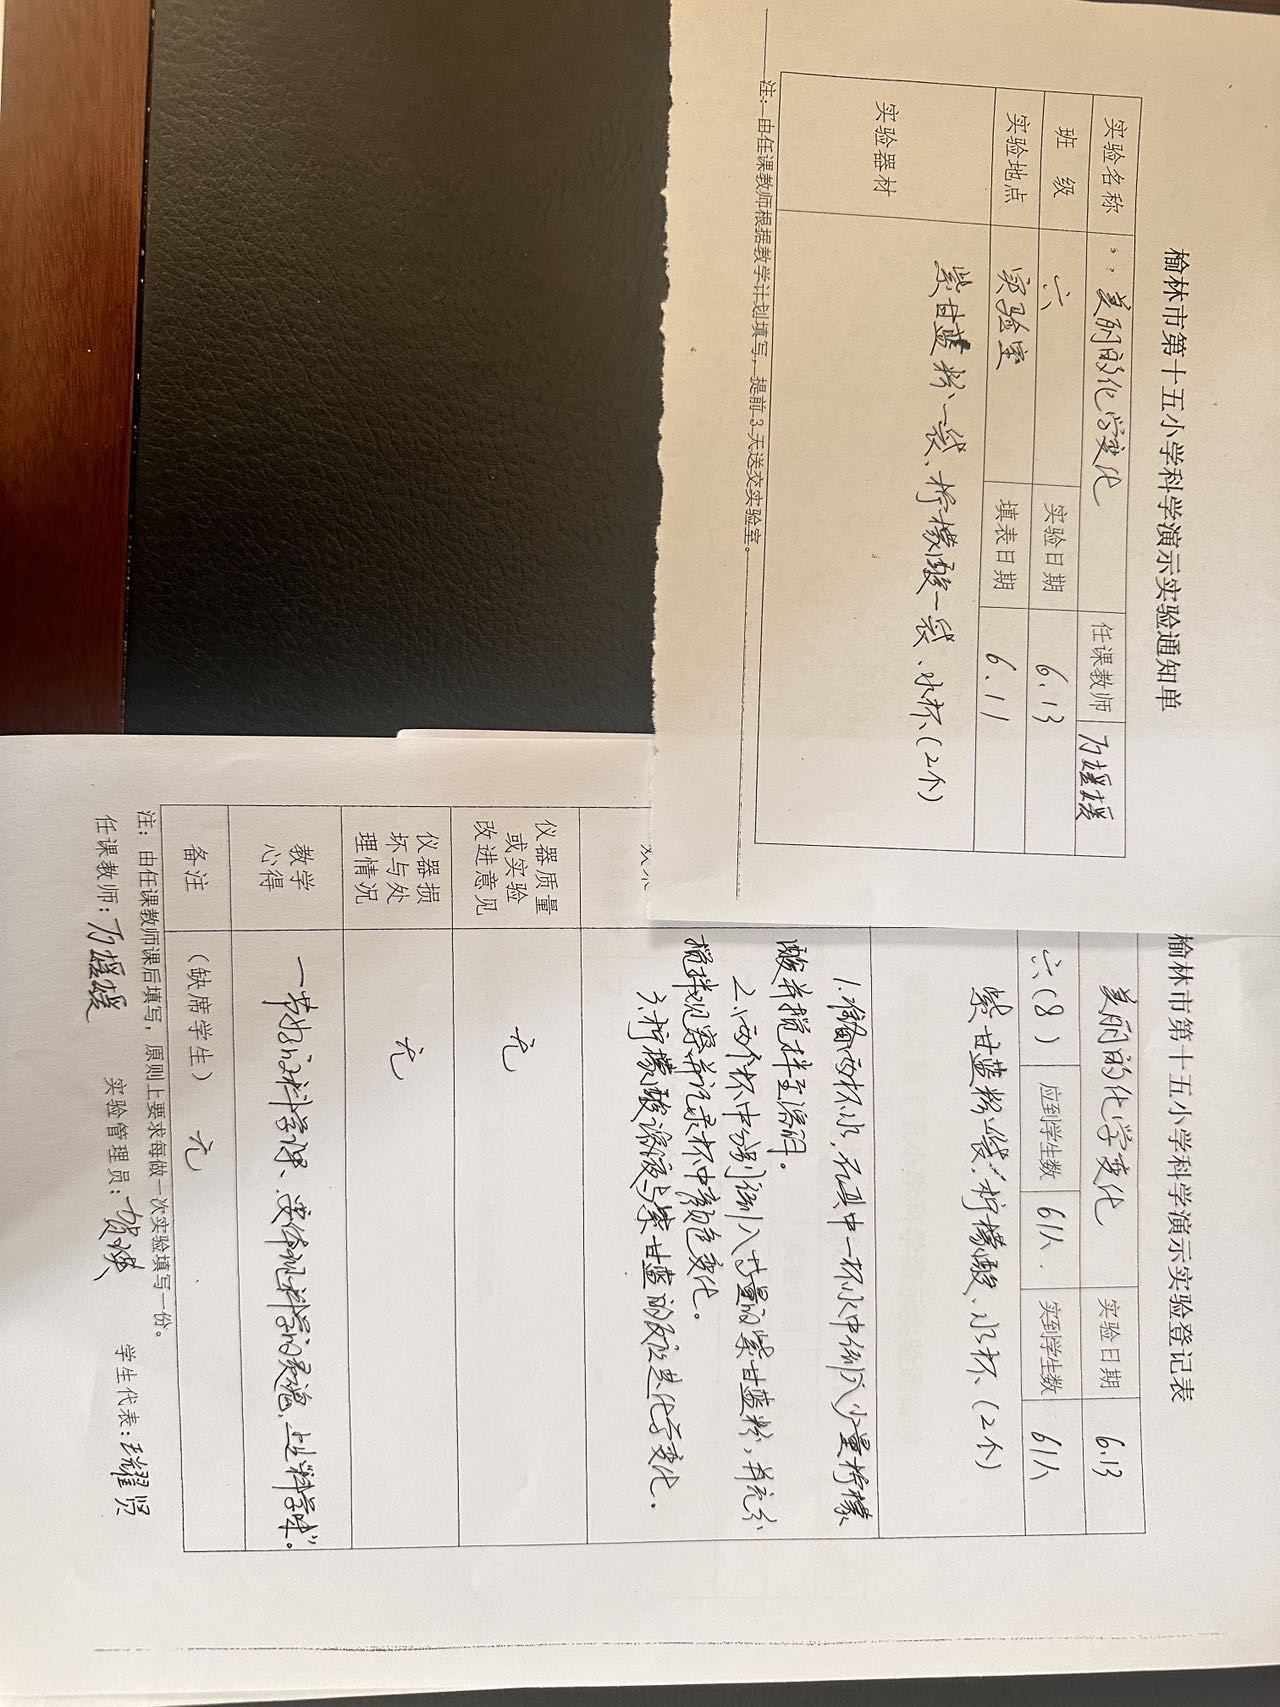 榆林市第十五小学科学演示实验通知单
实验名称 美丽的化学变化 任课教师 万媛媛
班 级 六 实验日期 6.13
实验地点 实验室 填表日期 6.11
实验器材 紫甘蓝粉一袋、柠檬酸一袋、水杯(2个)
注:由任课教师根据教学计划填写,提前3天送交实验室。
榆林市第十五小学科学演示实验登记表
美丽的化学变化 实验日期 6.13
六(8) 应到学生数 61人. 实到学生数 61人
紫甘蓝粉一袋、柠檬酸、水杯(2个)
1.准备两杯水,在其中一杯水中倒入少量柠檬
酸并搅拌至溶解.
2.向两个杯中分别倒入适量的紫甘蓝粉,并充分
搅拌观察并记录杯中颜色变化.
3.柠檬酸溶液与紫甘蓝的反应是化学变化.
仪器质量
或实验
改进意见
无
仪器损
坏与处
理情况
无
教学
心得
一节好的科学课、要体现科学的灵魂,上出“科学味”。
备注 (缺席学生) 无
注:由任课教师课后填写,原则上要求每做一次实验填写一份。
任课教师:万媛媛 实验管理员:贺瑛 学生代表:耀贤